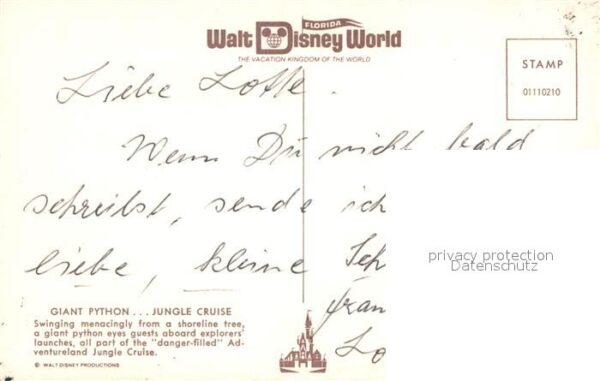 FLORIDA
Walt Disney World
THE VACATION KINGDOM OF THE WORLD
STAMP
01110210
Liebe Lotte.
Wenn Du nicht bald
schreibst, sende ich
liebe, kleine Sch
Lo
privacy protection
Datenschutz
GIANT PYTHON... JUNGLE CRUISE
Swinging menacingly from a shoreline tree,
a giant python eyes guests aboard explorers'
launches, all part of the "danger-filled" Ad-
ventureland Jungle Cruise.
© WALT DISNEY PRODUCTIONS